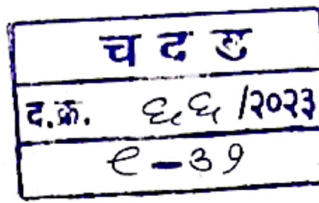 च द ड
द.क्र. ६६ /२०२३
९-३१